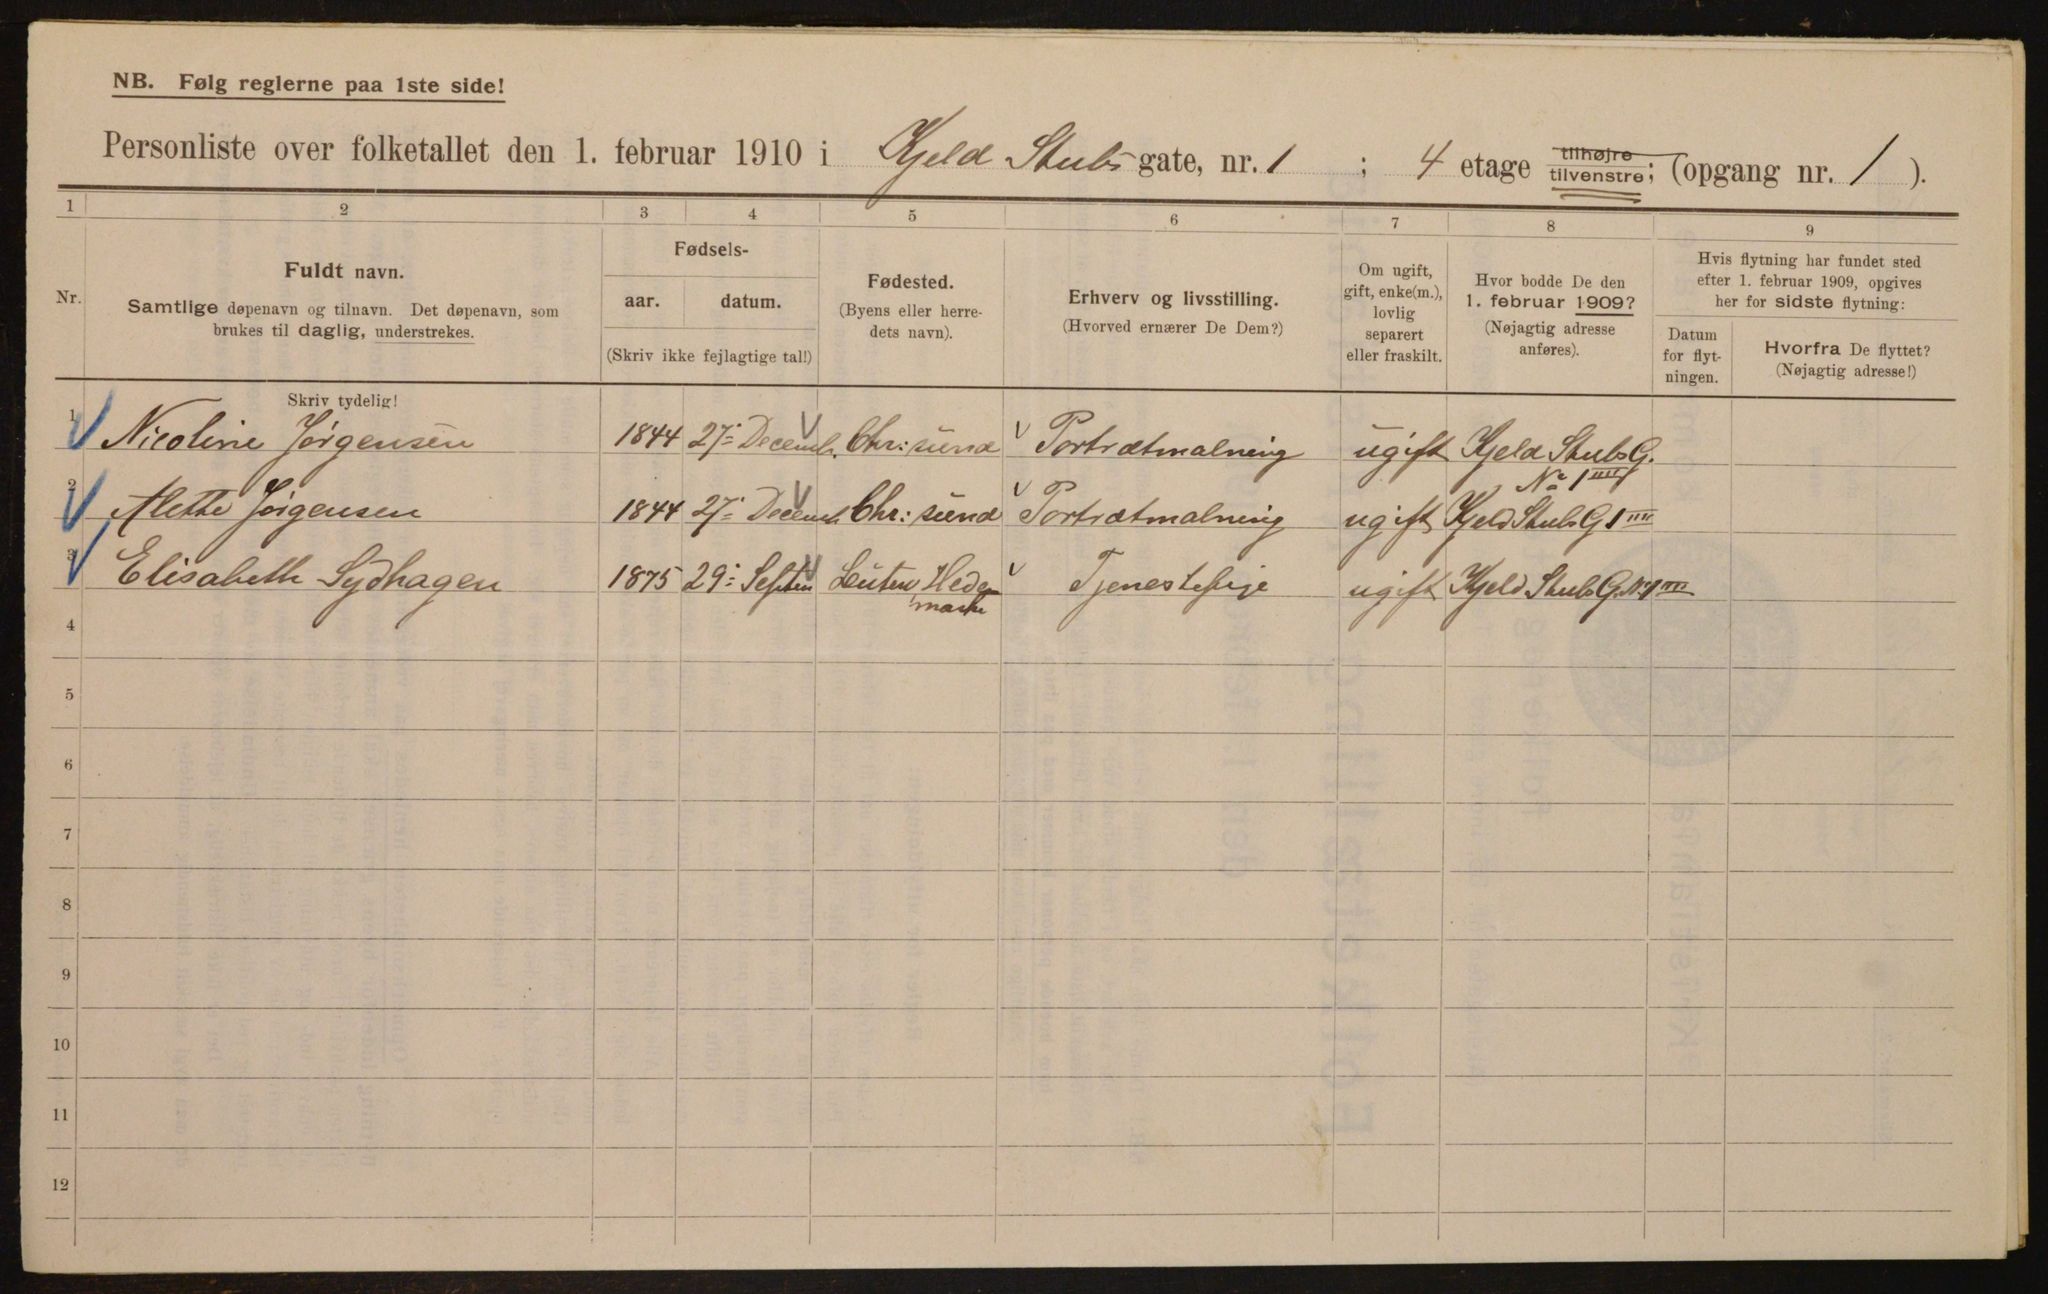 NB. Følg reglerne paa 1ste side!
Personliste over folketallet den 1. februar 1910 i Kjeld Stubs gate, nr. 1 ; 4 etage tilhøjre tilvenstre; (opgang nr. 1 ).
1 2 3 4 5 6 7 8 9
Nr.
Fuldt navn.
Samtlige døpenavn og tilnavn. Det døpenavn, som
brukes til daglig, understrekes.
Skriv tydelig!
Fødsels-
aar. datum.
(Skriv ikke fejlagtige tal!)
Fødested.
(Byens eller herre-
dets navn).
Erhverv og livsstilling.
(Hvorved ernærer De Dem?)
Om ugift,
gift, enke(m.),
lovlig
separert
eller fraskilt.
Hvor bodde De den
1. februar 1909?
(Nøjagtig adresse
anføres).
Hvis flytning har fundet sted
efter 1. februar 1909, opgives
her for sidste flytning:
Datum
for flyt-
ningen.
Hvorfra De flyttet?
(Nøjagtig adresse!)
1 Nicoline Jørgensen 1844 27: Decemb. Chr: sund Portrætmalning ugift Kjeld Stubs G.
No 1 IIII
2 Alette Jørgensen 1844 27: Decemb. Chr: sund Portrætmalning ugift Kjeld Stubs G 1 IIII
3 Elisabeth Sydhagen 1875 29: Septem Løiten, Hede
marke Tjenestepige ugift Kjeld Stubs G. No 1 IIII
4
5
6
7
8
9
10
11
12